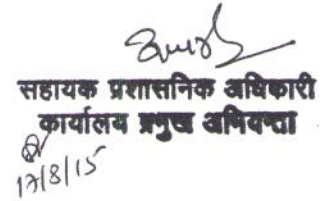 सहायक प्रशासनिक अधिकारी
कार्यालय प्रमुख अभियन्ता
17/8/15